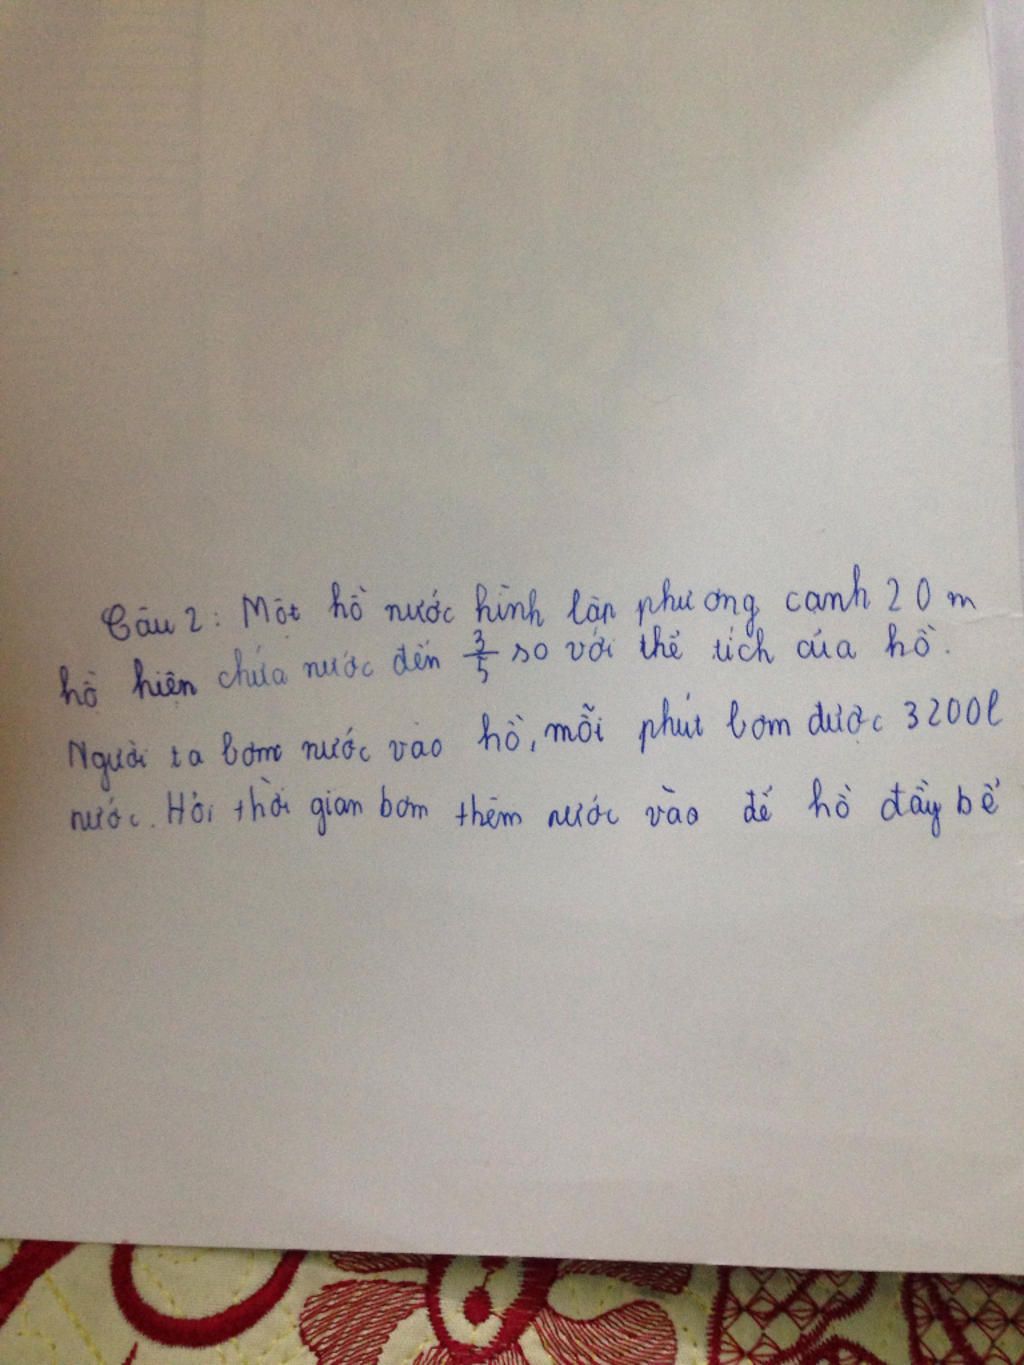 Câu 2: Một hồ nước hình lập phương cạnh 20 m
hồ hiện chứa nước đến 3/5 so với thể tích của hồ.
Người ta bơm nước vào hồ, mỗi phút bơm được 3200l
nước. Hỏi thời gian bơm thêm nước vào để hồ đầy bể